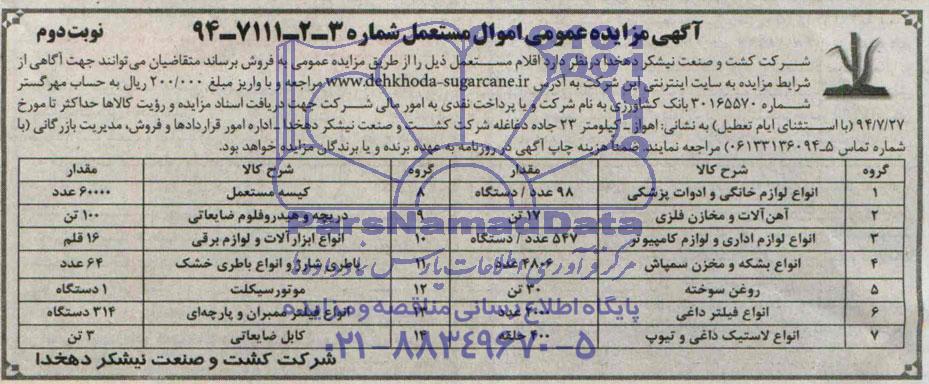 آگهی مزایده عمومی اموال مستعمل شماره ۳-۲-۷۱۱۱-۹۴
نوبت دوم
شرکت کشت و صنعت نیشکر دهخدا در نظر دارد اقلام مستعمل ذیل را از طریق مزایده عمومی به فروش برساند متقاضیان می‌توانند جهت آگاهی از
شرایط مزایده به سایت اینترنتی این شرکت به آدرس www.dehkhoda-sugarcane.ir مراجعه و با واریز مبلغ ۲۰۰/۰۰۰ ریال به حساب مهرگستر
شماره ۳۰۱۶۵۵۷۰ بانک کشاورزی به نام شرکت و یا پرداخت نقدی به امور مالی شرکت جهت دریافت اسناد مزایده و رؤیت کالاها حداکثر تا مورخ
۹۴/۷/۲۷ (با استثنای ایام تعطیل) به نشانی: اهواز ـ کیلومتر ۲۳ جاده دغاغله شرکت کشت و صنعت نیشکر دهخدا ـ اداره امور قراردادها و فروش، مدیریت بازرگانی (با
شماره تماس ۵ـ۰۶۱۳۳۱۳۶۰۹۴) مراجعه نمایند. ضمناً هزینه چاپ آگهی در روزنامه به عهده برنده و یا برندگان مزایده خواهد بود.
گروه شرح کالا مقدار گروه شرح کالا مقدار
۱ انواع لوازم خانگی و ادوات پزشکی ۹۸ عدد / دستگاه ۸ کیسه مستعمل ۶۰۰۰۰ عدد
۲ آهن‌آلات و مخازن فلزی ۱۷ تن ۹ دریچه و هیدروفلوم ضایعاتی ۱۰۰ تن
۳ انواع لوازم اداری و لوازم کامپیوتر ۵۴۷ عدد / دستگاه ۱۰ انواع ابزارآلات و لوازم برقی ۱۶ قلم
۴ انواع بشکه و مخزن سمپاش ۴۸۰۶ عدد ۱۱ باطری شارژ و انواع باطری خشک ۶۴ عدد
۵ روغن سوخته ۳۰ تن ۱۲ موتورسیکلت ۱ دستگاه
۶ انواع فیلتر داغی ۴۰۰۰ عدد ۱۳ انواع فیلتر ممبران و پارچه‌ای ۳۱۴ دستگاه
۷ انواع لاستیک داغی و تیوپ ۴۰۰ حلقه ۱۴ کابل ضایعاتی ۳ تن
شرکت کشت و صنعت نیشکر دهخدا
ParsNamadData
مرکز فرآوری اطلاعات پارس نماد داده‌ها
پایگاه اطلاع رسانی مناقصه و مزایده
۰۲۱-۸۸۳۴۹۶۷۰-۵